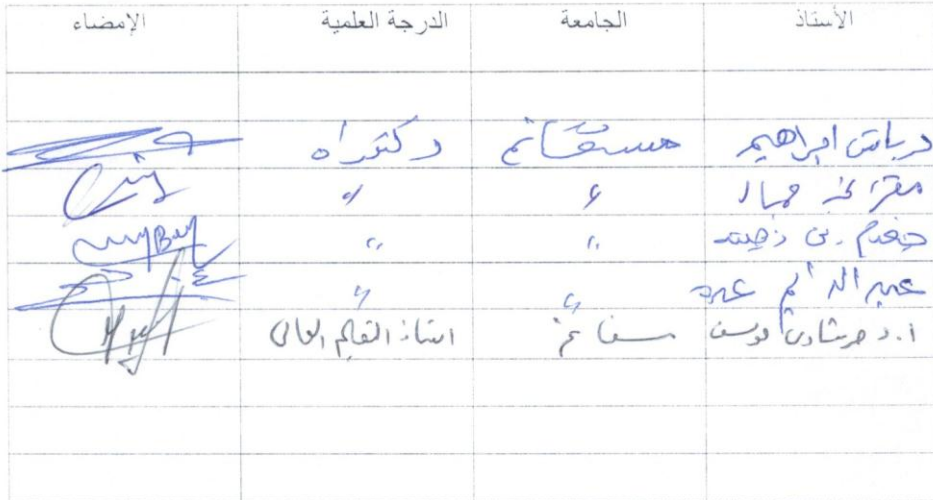 الأستاذ الجامعة الدرجة العلمية الإمضاء
دباتش ابراهيم مستغانم دكتوراه
مقراني جمال " "
" "
عبد الدايم عدة " "
ا.د حرشاوي يوسف مستغانم استاذ التعليم العالي